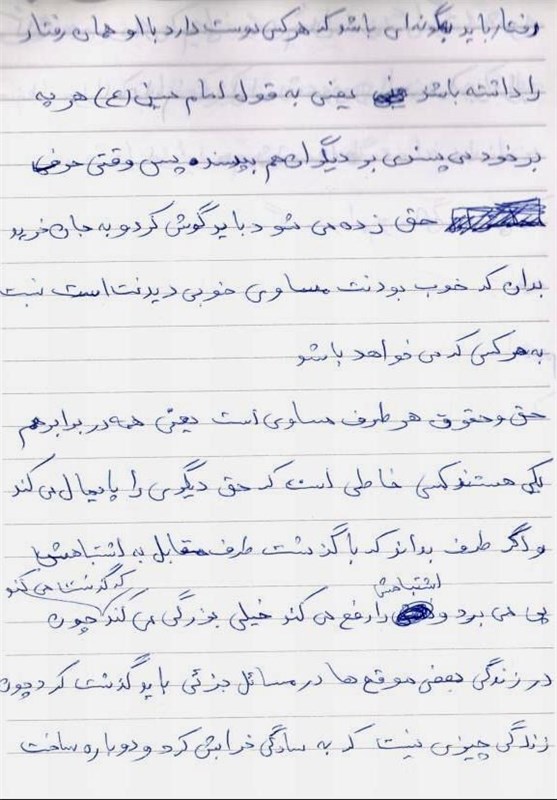 رفتار باید بگونه‌ای باشد که هر کس دوست دارد با او همان رفتار
را داشته باشد یعنی به قول امام حسین (ع) هر چه
بر خود می پسندی بر دیگران هم بپسند پس وقتی حرف
حق زده می شود باید گوش کرد و به جان خرید
بدان که خوب بودنت مساوی خوبی دیدنت است نسبت
به هر کس که می خواهد باشد
حق و حقوق هر طرف مساوی است یعنی همه در برابر هم
یکی هستند کسی خاطی است که حق دیگری را پایمال می کند
و اگر طرف بداند که با گذشت طرف مقابل به اشتباهش
پی می برد و اشتباهش را رفع می کند خیلی بزرگی می کند که گذشت می کند چون
در زندگی بعضی موقع ها در مسائل جزئی باید گذشت کرد چون
زندگی چیزی نیست که به سادگی خرابش کرد و دوباره ساخت